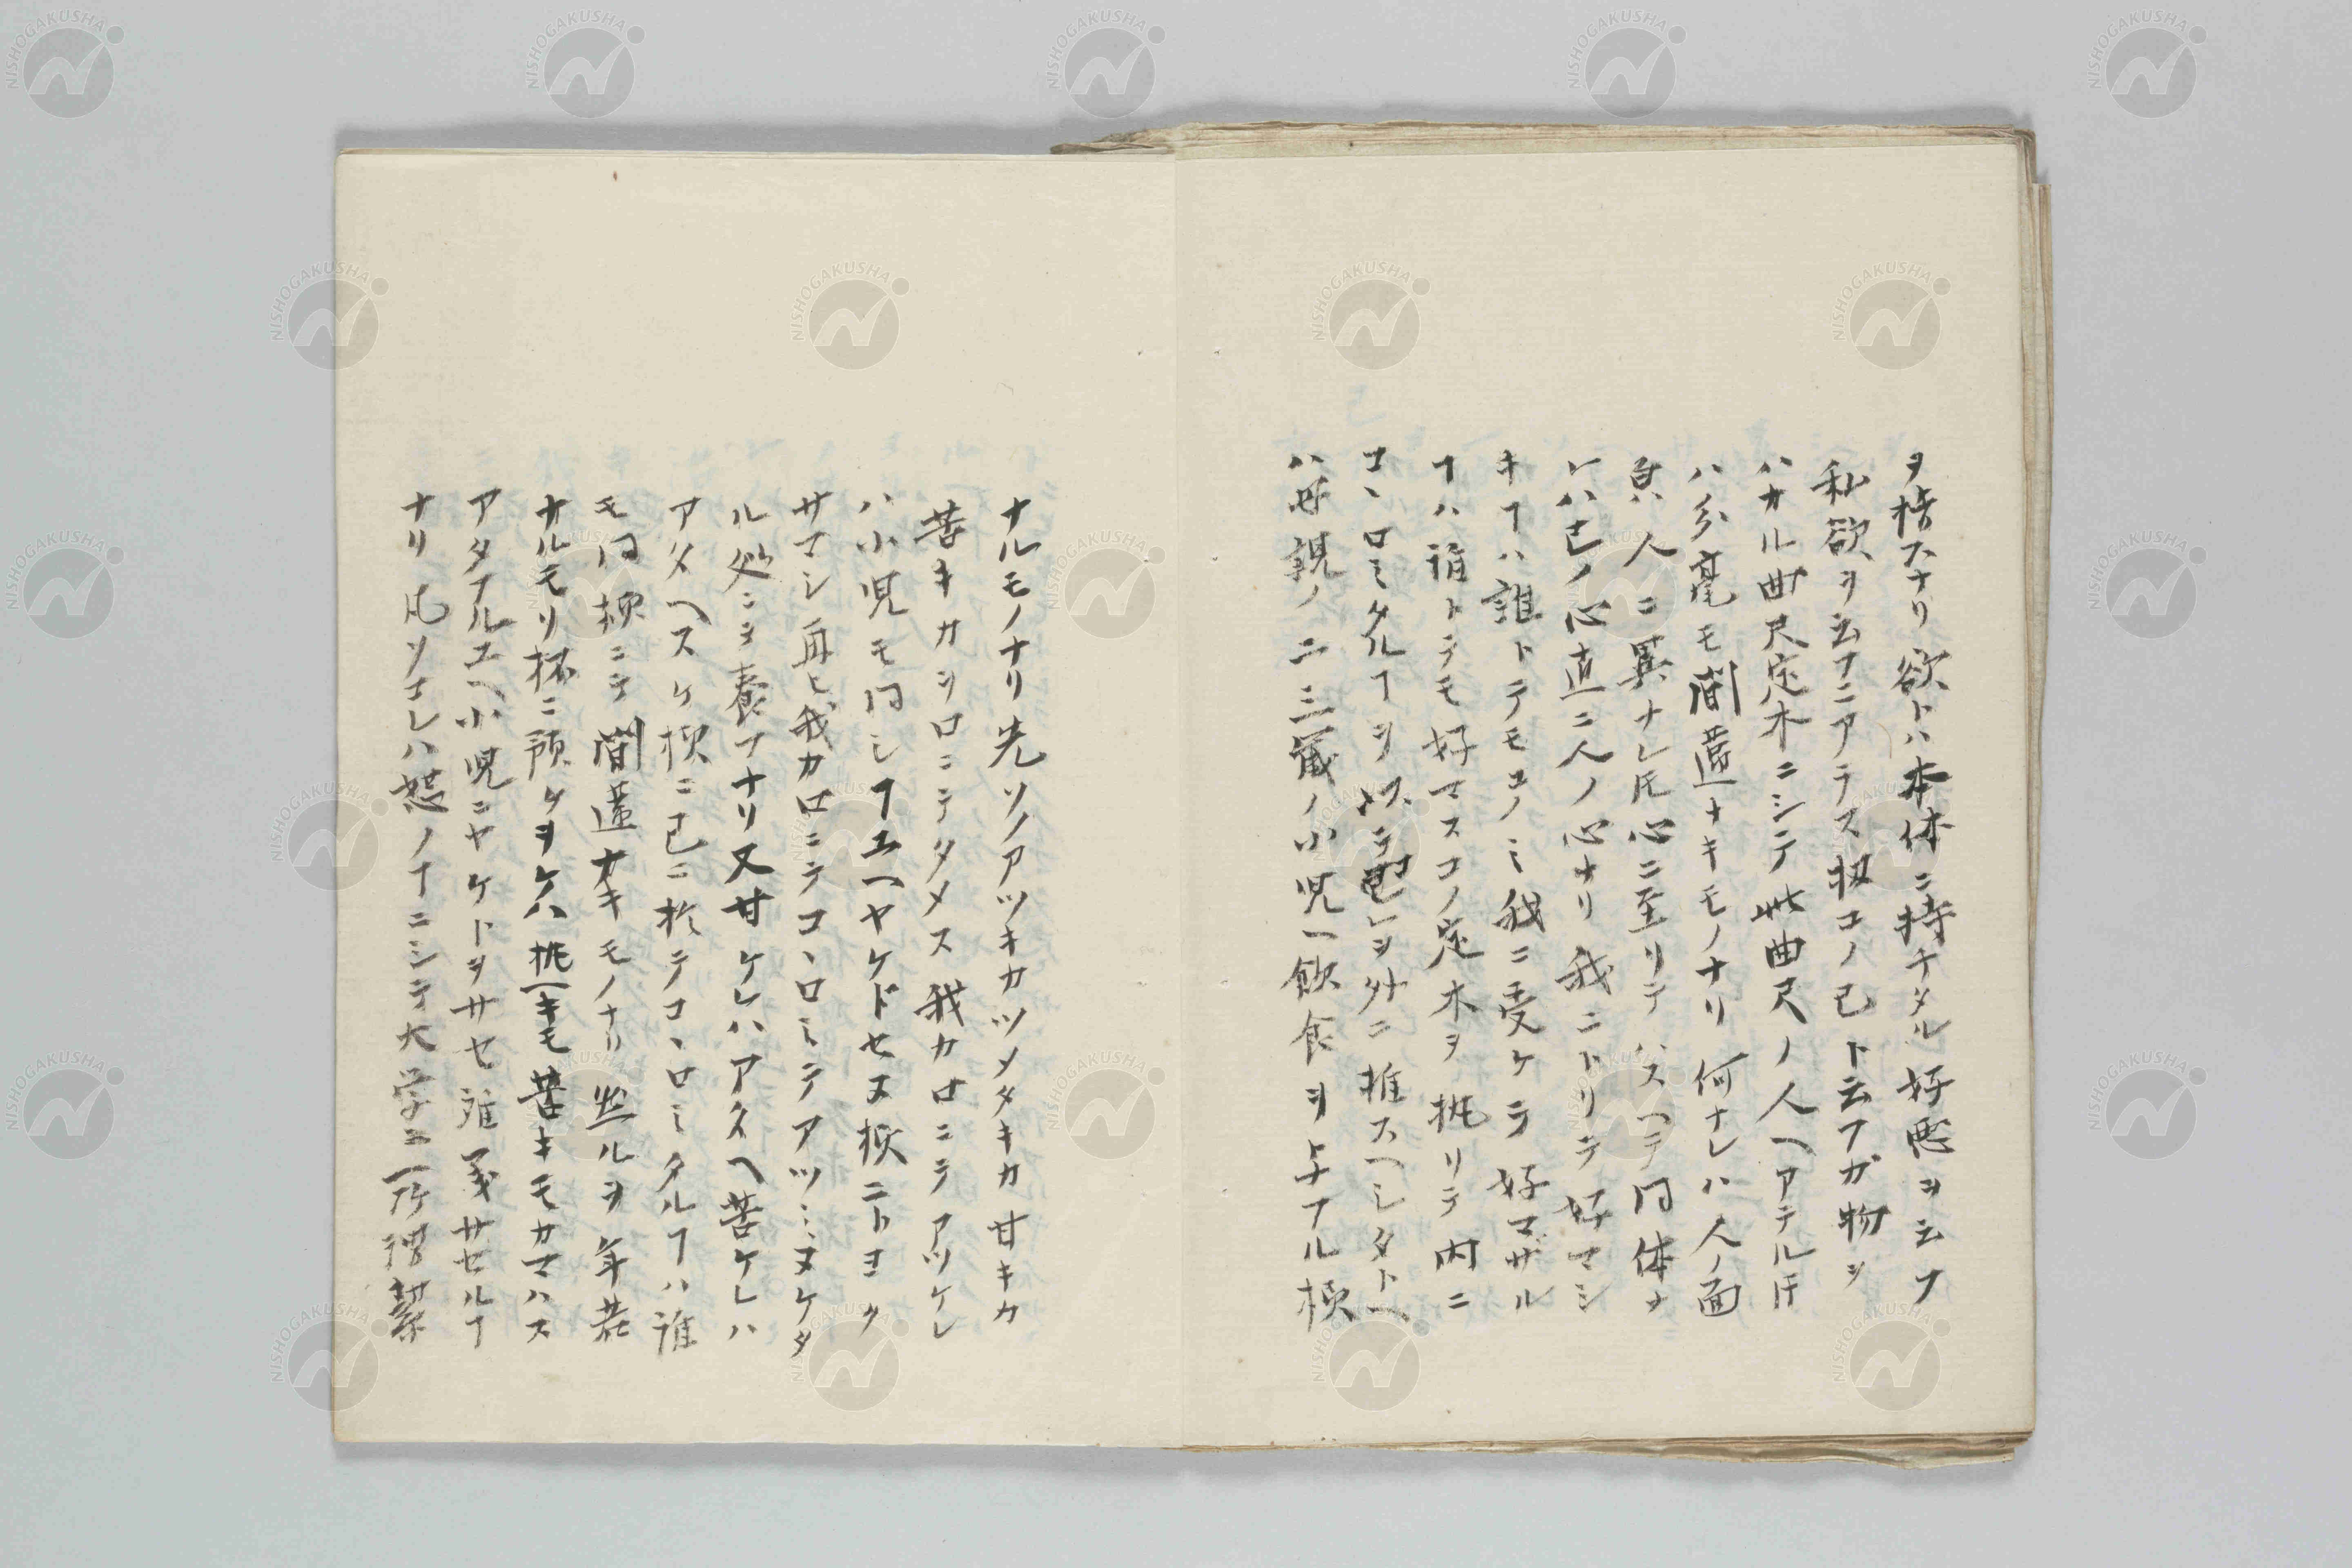 ヲ指スナリ欲トハ本体ニ持チタル好悪ヲ云フ
私欲ヲ云フニアラス扨コノ己ト云フガ物ヲ
ハカル曲尺定木ニシテ此曲尺ノ人ヘアテル𪜈
ハ分毫モ間違ナキモノナリ何ナレハ人ノ面
貌ハ人ニ異ナレ𪜈心ニ至リテハスヘテ同体ナ
レハ己ノ心直ニ人ノ心ナリ我ニトリテ好マシ
キヿハ誰トテモコノミ我ニ受ケテ好マザル
ヿハ誰トテモ好マスコノ定木ヲ執リテ内ニ
コヽロミタルヿヲ以テ是ヲ外ニ推スヘシタトヘ
ハ母親ノ二三歳ノ小児ヘ飲食ヲ与フル様
ナルモノナリ先ソノアツキカツメタキカ甘キカ
苦キカヲ口ニテタメス我カ口ニテアツケレ
ハ小児モ同シヿユヘヤケドセヌ様ニトヨク
サマシ再ヒ我カ口ニテコヽロミテアツミヌケタ
ル処ニテ養フナリ又甘ケレハアタヘ苦ケレハ
アタヘスケ様ニ己ニ於テコヽロミタルヿハ誰
モ同様ニテ間違ナキモノナリ然ルヲ年若
ナルモリ杯ニ預ケヲケハ熱キモ苦キモカマハス
アタフルユヘ小児ニヤケトヲサセ難義サセルヿ
ナリ凡ソコレハ恕ノヿニシテ大学ニ所謂絜
NISHOGAKUSHA